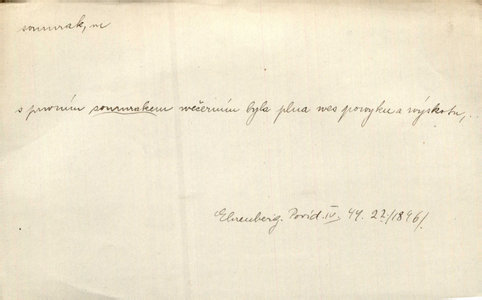 soumrak, m
s prvním soumrakem večerním byla plna ves povyku a výskotu,..
Ehrenberg. Povíd. IV. 44. 27./1896/